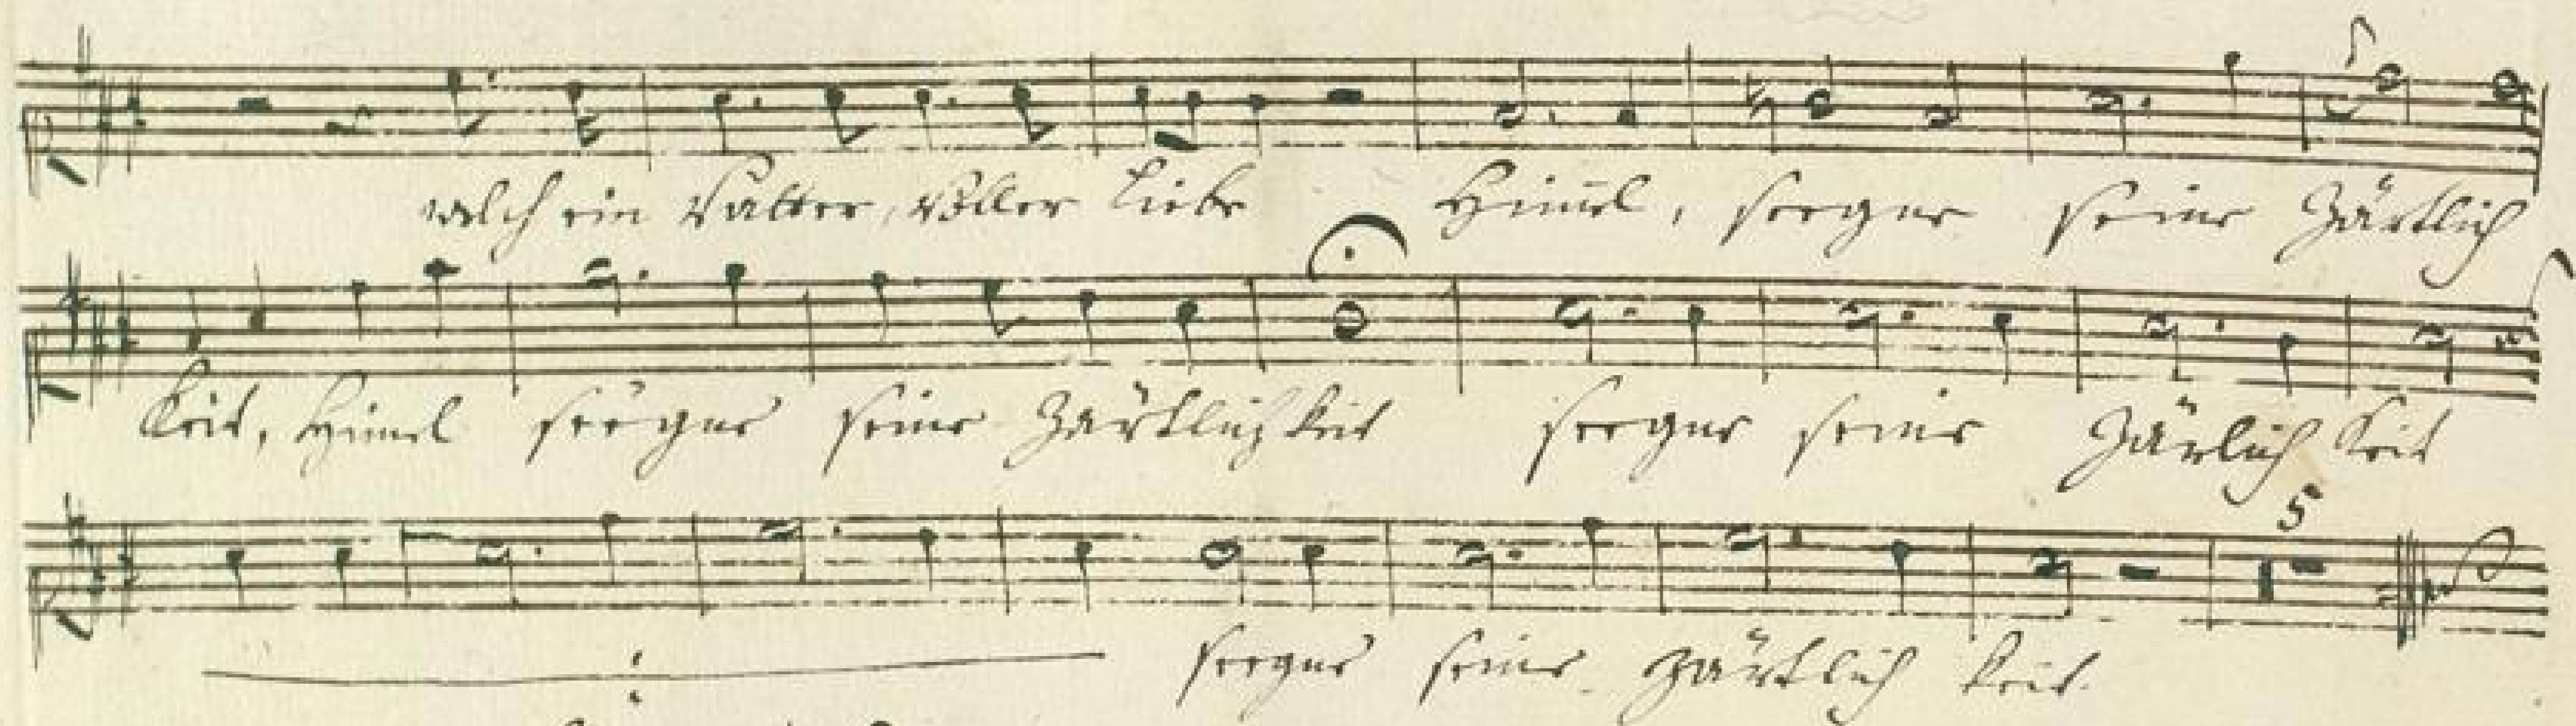 welch ein Vatter, voller Liebe Him̅el, seegne seine Zärtlich
keit, Him̅el seegne seine Zärtlichkeit seegne seine Zärlichkeit
5
seegne seine Zärtlichkeit.